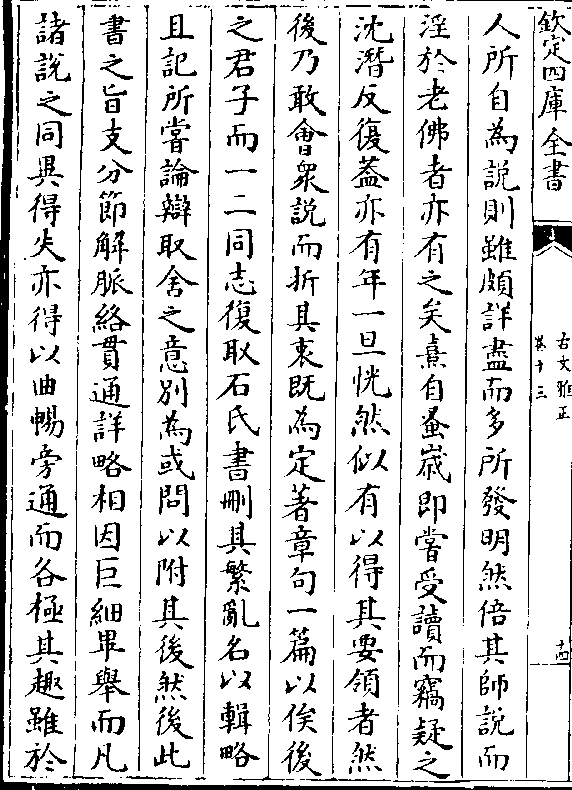 欽定四庫全書
古文雅正
卷十三
十四
人所自為説則雖頗詳盡而多所發明然倍其師説而
淫於老佛者亦有之矣熹自蚤嵗即嘗受讀而竊疑之
沈潛反復葢亦有年一旦恍然似有以得其要領者然
後乃敢會衆說而折其衷既為定著章句一篇以俟後
之君子而一二同志復取石氏書刪其繁亂名以輯略
且記所嘗論辯取舍之意别為或問以附其後然後此
書之旨支分節解脈絡貫通詳略相因巨細畢舉而凡
諸説之同異得失亦得以曲暢旁通而各極其趣雖於